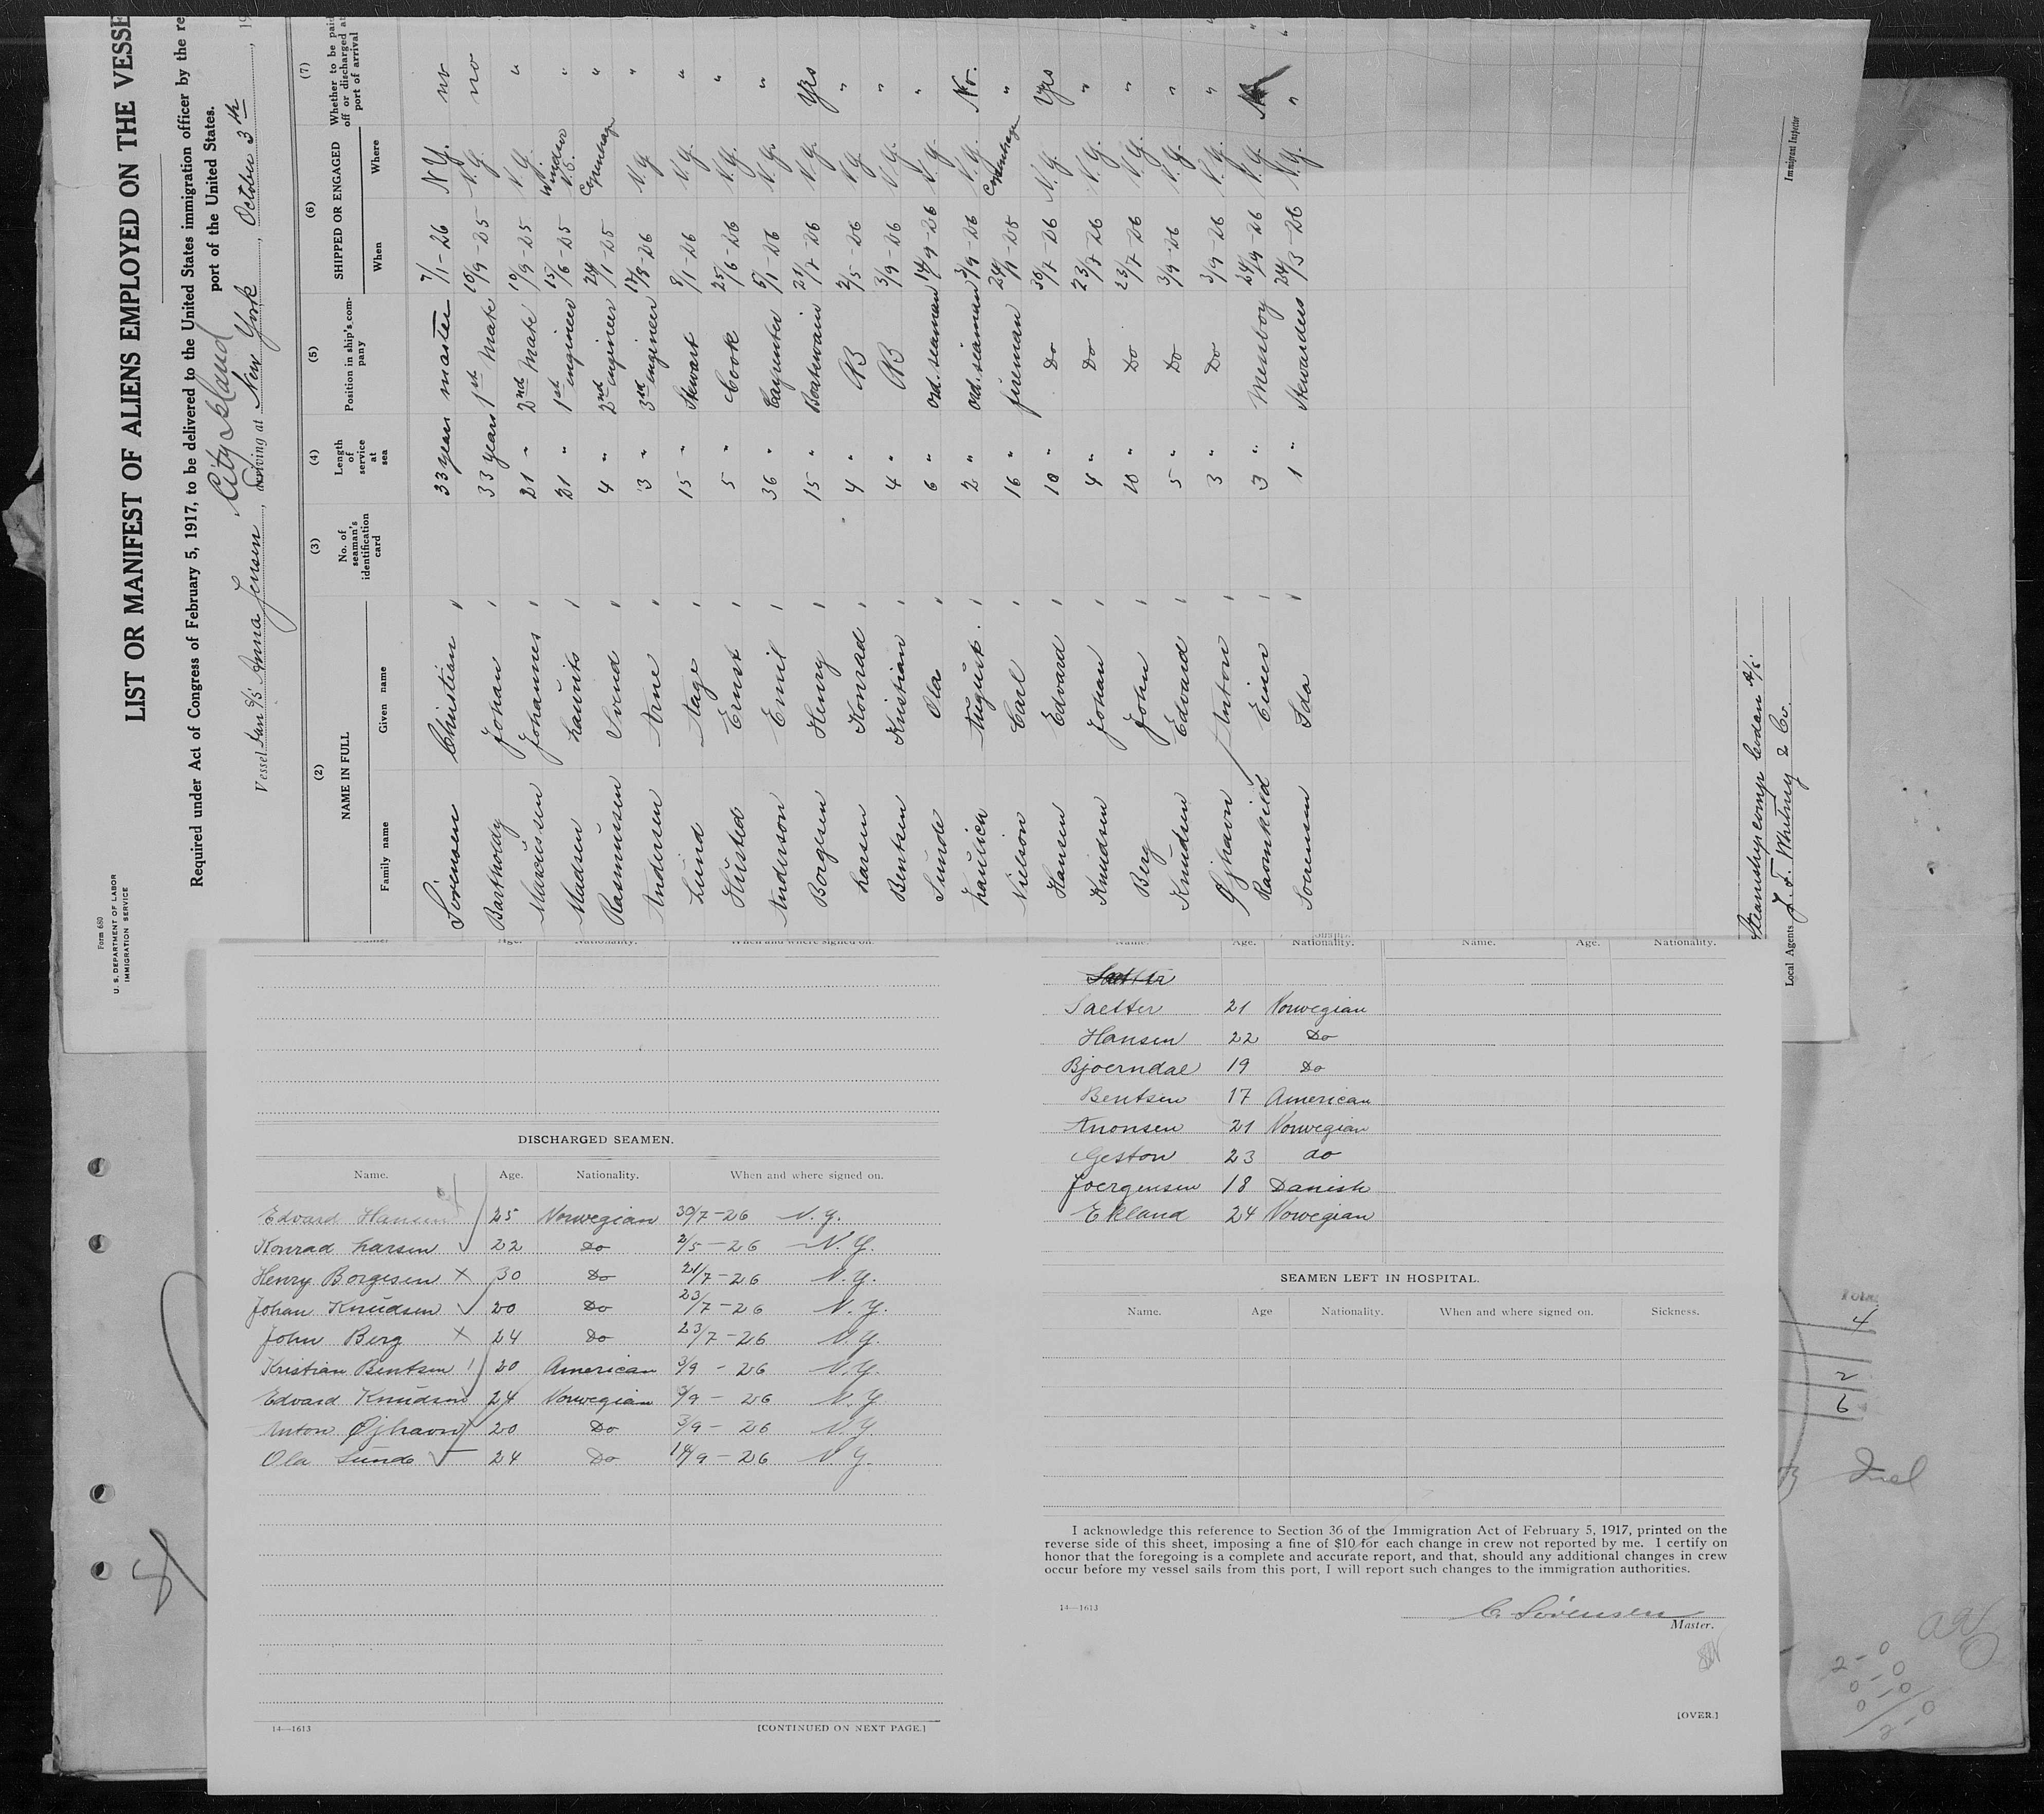 Form 680
U. S. DEPARTMENT OF LABOR
IMMIGRATION SERVICE
LIST OR MANIFEST OF ALIENS EMPLOYED ON THE VESSE
Required under Act of Congress of February 5, 1917, to be delivered to the United States immigration officer by the re
port of the United States.
City Island
Vessel Dan S/S Anna Jensen, arriving at New York, October 3th, 19
(2) (3) (4) (5) (6) (7)
NAME IN FULL No. of seaman's identification card Length of service at sea Position in ship's company SHIPPED OR ENGAGED Whether to be paid off or discharged at port of arrival
Family name Given name When Where
Sörensen Christian 33 years master 7/1-26 N.Y. no
Bartholdy Johan 33 years 1st Mate 10/9-25 N.Y. no
Marcussen Johannes 21 " 2nd Mate 19/9-25 N.Y. "
Madsen Laurits 21 " 1st engineer 15/6-25 "
Rasmussen Svend 4 " 2nd engineer 24/1-25 Copenhage "
Andersen Arne 3 " 3rd engineer 12/8-26 N.Y "
Lund Aage 15 " Stewart 8/1-26 N.Y. "
Husted Ernst 5 " Cook 25/6-26 N.Y. "
Anderson Emil 36 " Carpenter 5/1-26 N.Y. "
Borgesen Henry 15 " Boatswain 21/7-26 N.Y. Yes
Larsen Konrad 4 " AB 2/5-26 N.Y. "
Bentsen Kristian 4 " AB 3/9-26 N.Y. "
Sunde Ola 6 " Ord. seaman 14/9-26 N.Y. "
August 2 " Ord. seaman 3/9-26 N.Y. No.
Nielson Carl 16 " fireman Copenhage "
Hansen Edvard 10 " Do 30/7-26 N.Y. Yes
Knudsen Johan 4 " Do 23/7-26 N.Y. "
Berg John 10 " Do 23/7-26 N.Y. "
Knudsen Edvard 5 " Do 3/9-26 N.Y. "
Øjhavn Anton 3 " Do 3/9-26 N.Y. "
Ravnskild Einer 3 " Messboy 24/9-26 N.Y.
Sörensen Ida 1 " Stewardess 24/3-26 N.Y. "
Local Agents J. F. Whitney & Co.
Immigrant Inspector
Name. Age. Nationality. When and where signed on.
DISCHARGED SEAMEN.
Name. Age. Nationality. When and where signed on.
Edvard Hansen 25 Norwegian 30/7-26 N.Y.
Konrad Larsen 22 Do 2/5-26 N.Y.
Henry Borgesen x 30 Do 21/7-26 N.Y.
Johan Knudsen 20 Do 23/7-26 N.Y.
John Berg x 24 Do 23/7-26 N.Y.
Kristian Bentsen 20 American 3/9-26 N.Y.
Edvard Knudsen 24 Norwegian 3/9-26 N.Y
Anton Øjhavn 20 Do 3/9-26 N.Y.
Ola Sunde 24 Do 14/9-26 N.Y.
14—1613 [CONTINUED ON NEXT PAGE.]
Name. Age. Nationality. Name. Age. Nationality.
Saetter
Saetter 21 Norwegian
Hansen 22 Do
Bjoerndal 19 Do
Bentsen 17 American
Anonsen 21 Norwegian
Geston 23 do
Joergensen 18 Danish
Ekland 24 Norwegian
SEAMEN LEFT IN HOSPITAL.
Name. Age Nationality. When and where signed on. Sickness.
I acknowledge this reference to Section 36 of the Immigration Act of February 5, 1917, printed on the
reverse side of this sheet, imposing a fine of $10 for each change in crew not reported by me. I certify on
honor that the foregoing is a complete and accurate report, and that, should any additional changes in crew
occur before my vessel sails from this port, I will report such changes to the immigration authorities.
14—1613
C. Sörensen
Master.
[OVER.]
4
2
6
2-0
0-0
0-0
2-0